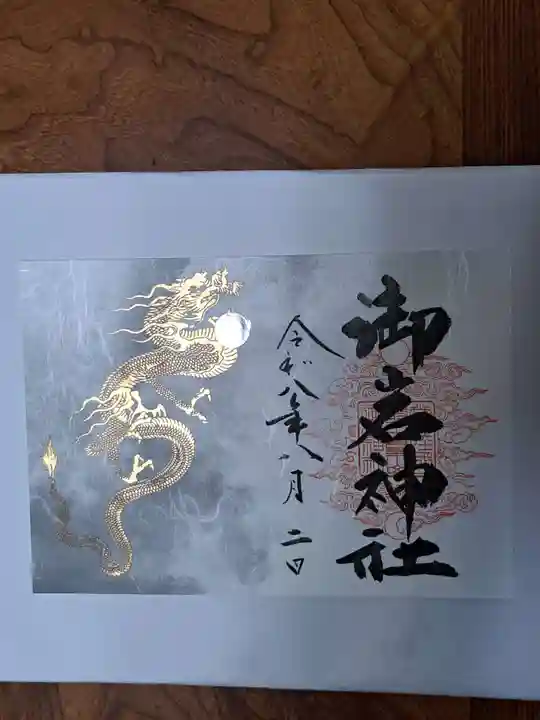 御岩神社
令和八年八月二日